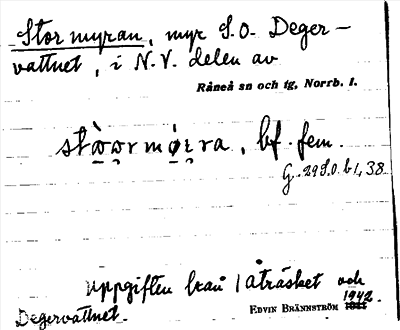 Stormyran, myr S.O. Deger-
vattnet, i N.V. delen av
Råneå sn och tg, Norrb. l.
bf. fem.
G. 29 S.O. b 1, 38.
Uppgiften från Åträsket och
Degervattnet.
EDVIN BRÄNNSTRÖM 1942.